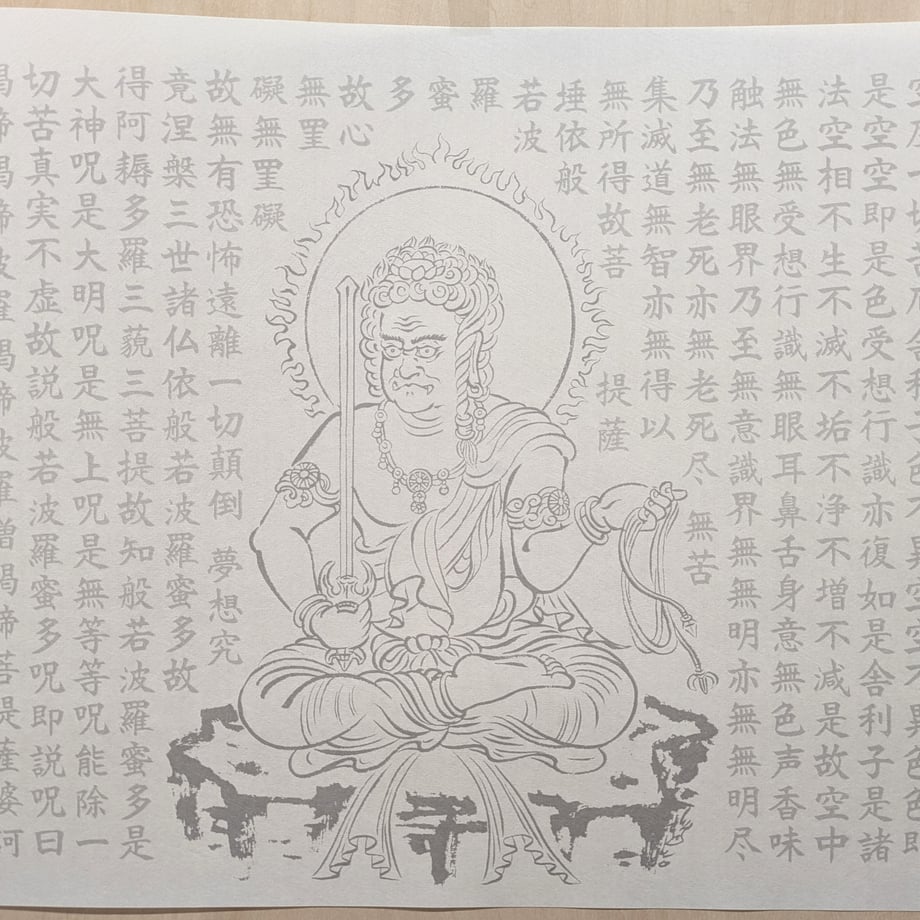 是空空即是色受想行識亦復如是舎利子是諸
法空相不生不滅不垢不浄不増不減是故空中
無色無受想行識無眼耳鼻舌身意無色声香味
触法無眼界乃至無意識界無無明亦無無明尽
乃至無老死亦無老死尽無苦
集滅道無智亦無得以
無所得故菩提薩
埵依般
若波
羅
蜜
多
故心
無罣
礙無罣礙
故無有恐怖遠離一切顛倒夢想究
竟涅槃三世諸仏依般若波羅蜜多故
得阿耨多羅三藐三菩提故知般若波羅蜜多是
大神呪是大明呪是無上呪是無等等呪能除一
切苦真実不虚故説般若波羅蜜多呪即説呪曰
羯諦羯諦波羅羯諦波羅僧羯諦菩提薩婆訶